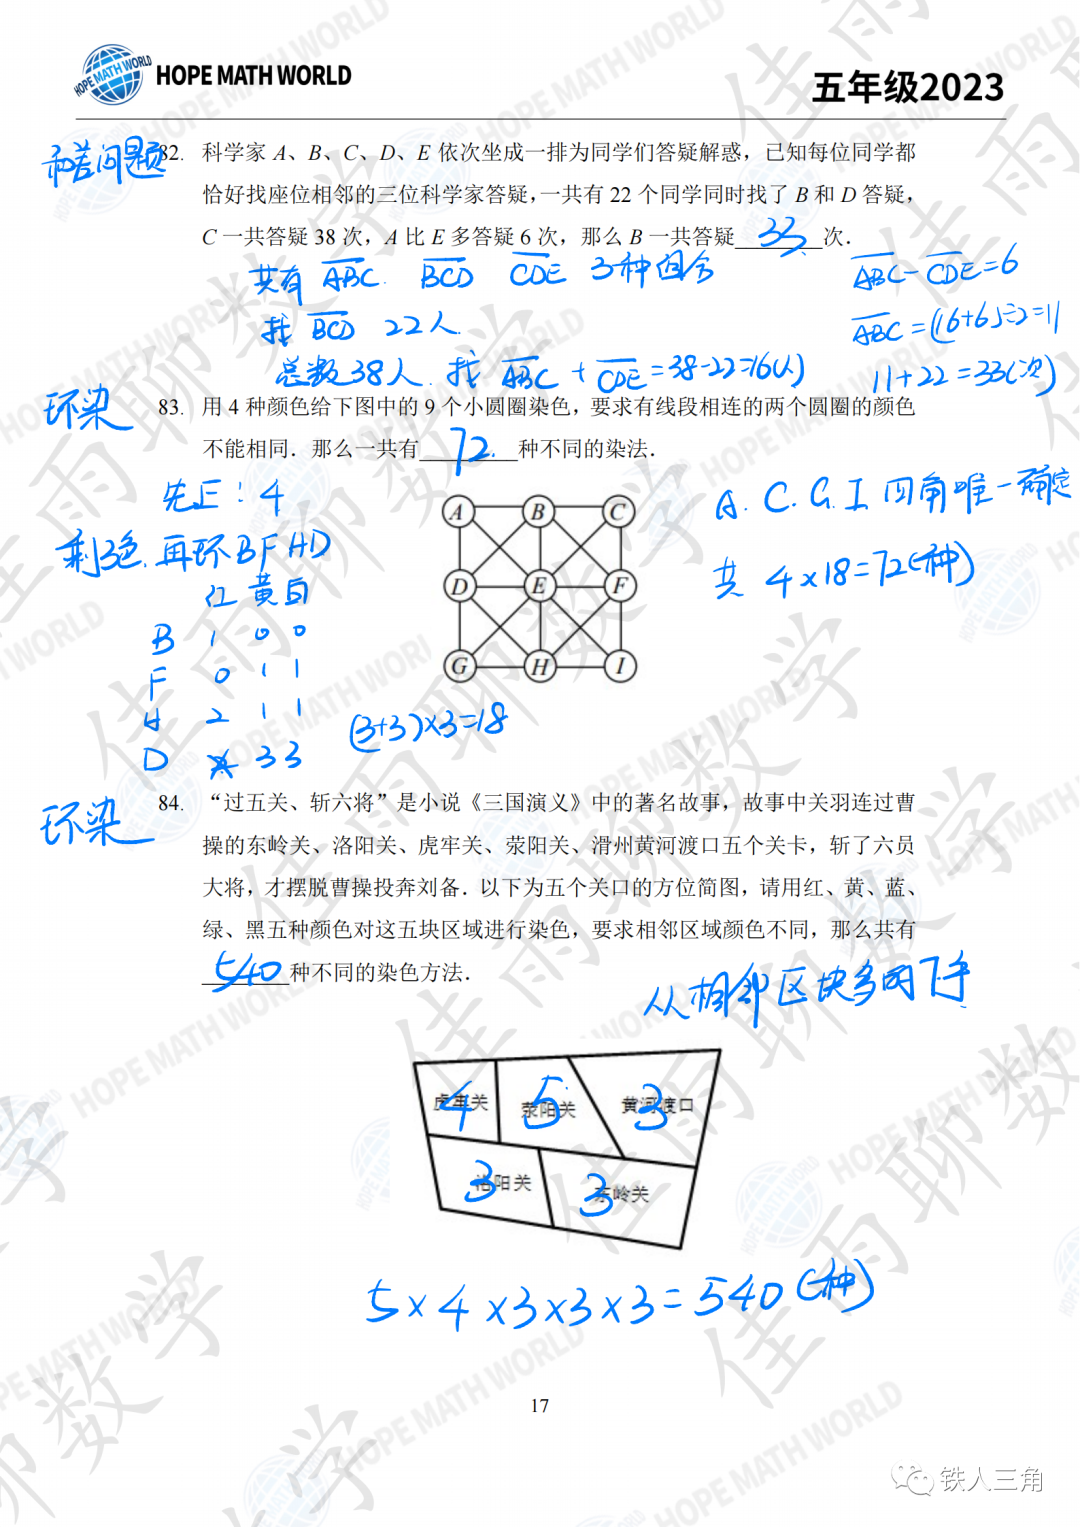 HOPE MATH WORLD
五年级2023
和差问题
82. 科学家 A、B、C、D、E 依次坐成一排为同学们答疑解惑，已知每位同学都
恰好找座位相邻的三位科学家答疑，一共有 22 个同学同时找了 B 和 D 答疑，
C 一共答疑 38 次，A 比 E 多答疑 6 次，那么 B 一共答疑 33 次．
共有 ABC BCD CDE 3种组合
ABC-CDE=6
找 BCD 22人
ABC=(16+6)÷2=11
总数38人. 找 ABC + CDE=38-22=16(人)
11+22=33(次)
环染
83. 用 4 种颜色给下图中的 9 个小圆圈染色，要求有线段相连的两个圆圈的颜色
不能相同．那么一共有 72. 种不同的染法．
先正：4
A B C
A. C. G. I 四角唯一确定
剩3色. 再环BFHD
D E F
共 4×18=72(种)
红 黄 白
B 1 0 0
F 0 1 1
G H I
H 2 1 1
(3+3)×3=18
D 3 3
环染
84. “过五关、斩六将”是小说《三国演义》中的著名故事，故事中关羽连过曹
操的东岭关、洛阳关、虎牢关、荥阳关、滑州黄河渡口五个关卡，斩了六员
大将，才摆脱曹操投奔刘备．以下为五个关口的方位简图，请用红、黄、蓝、
绿、黑五种颜色对这五块区域进行染色，要求相邻区域颜色不同，那么共有
540 种不同的染色方法．
从相邻区块多的下手
虎牢关 4 荥阳关 5 黄河渡口 3
洛阳关 3 东岭关 3
5×4×3×3×3=540(种)
17
铁人三角
佳雨聊数学